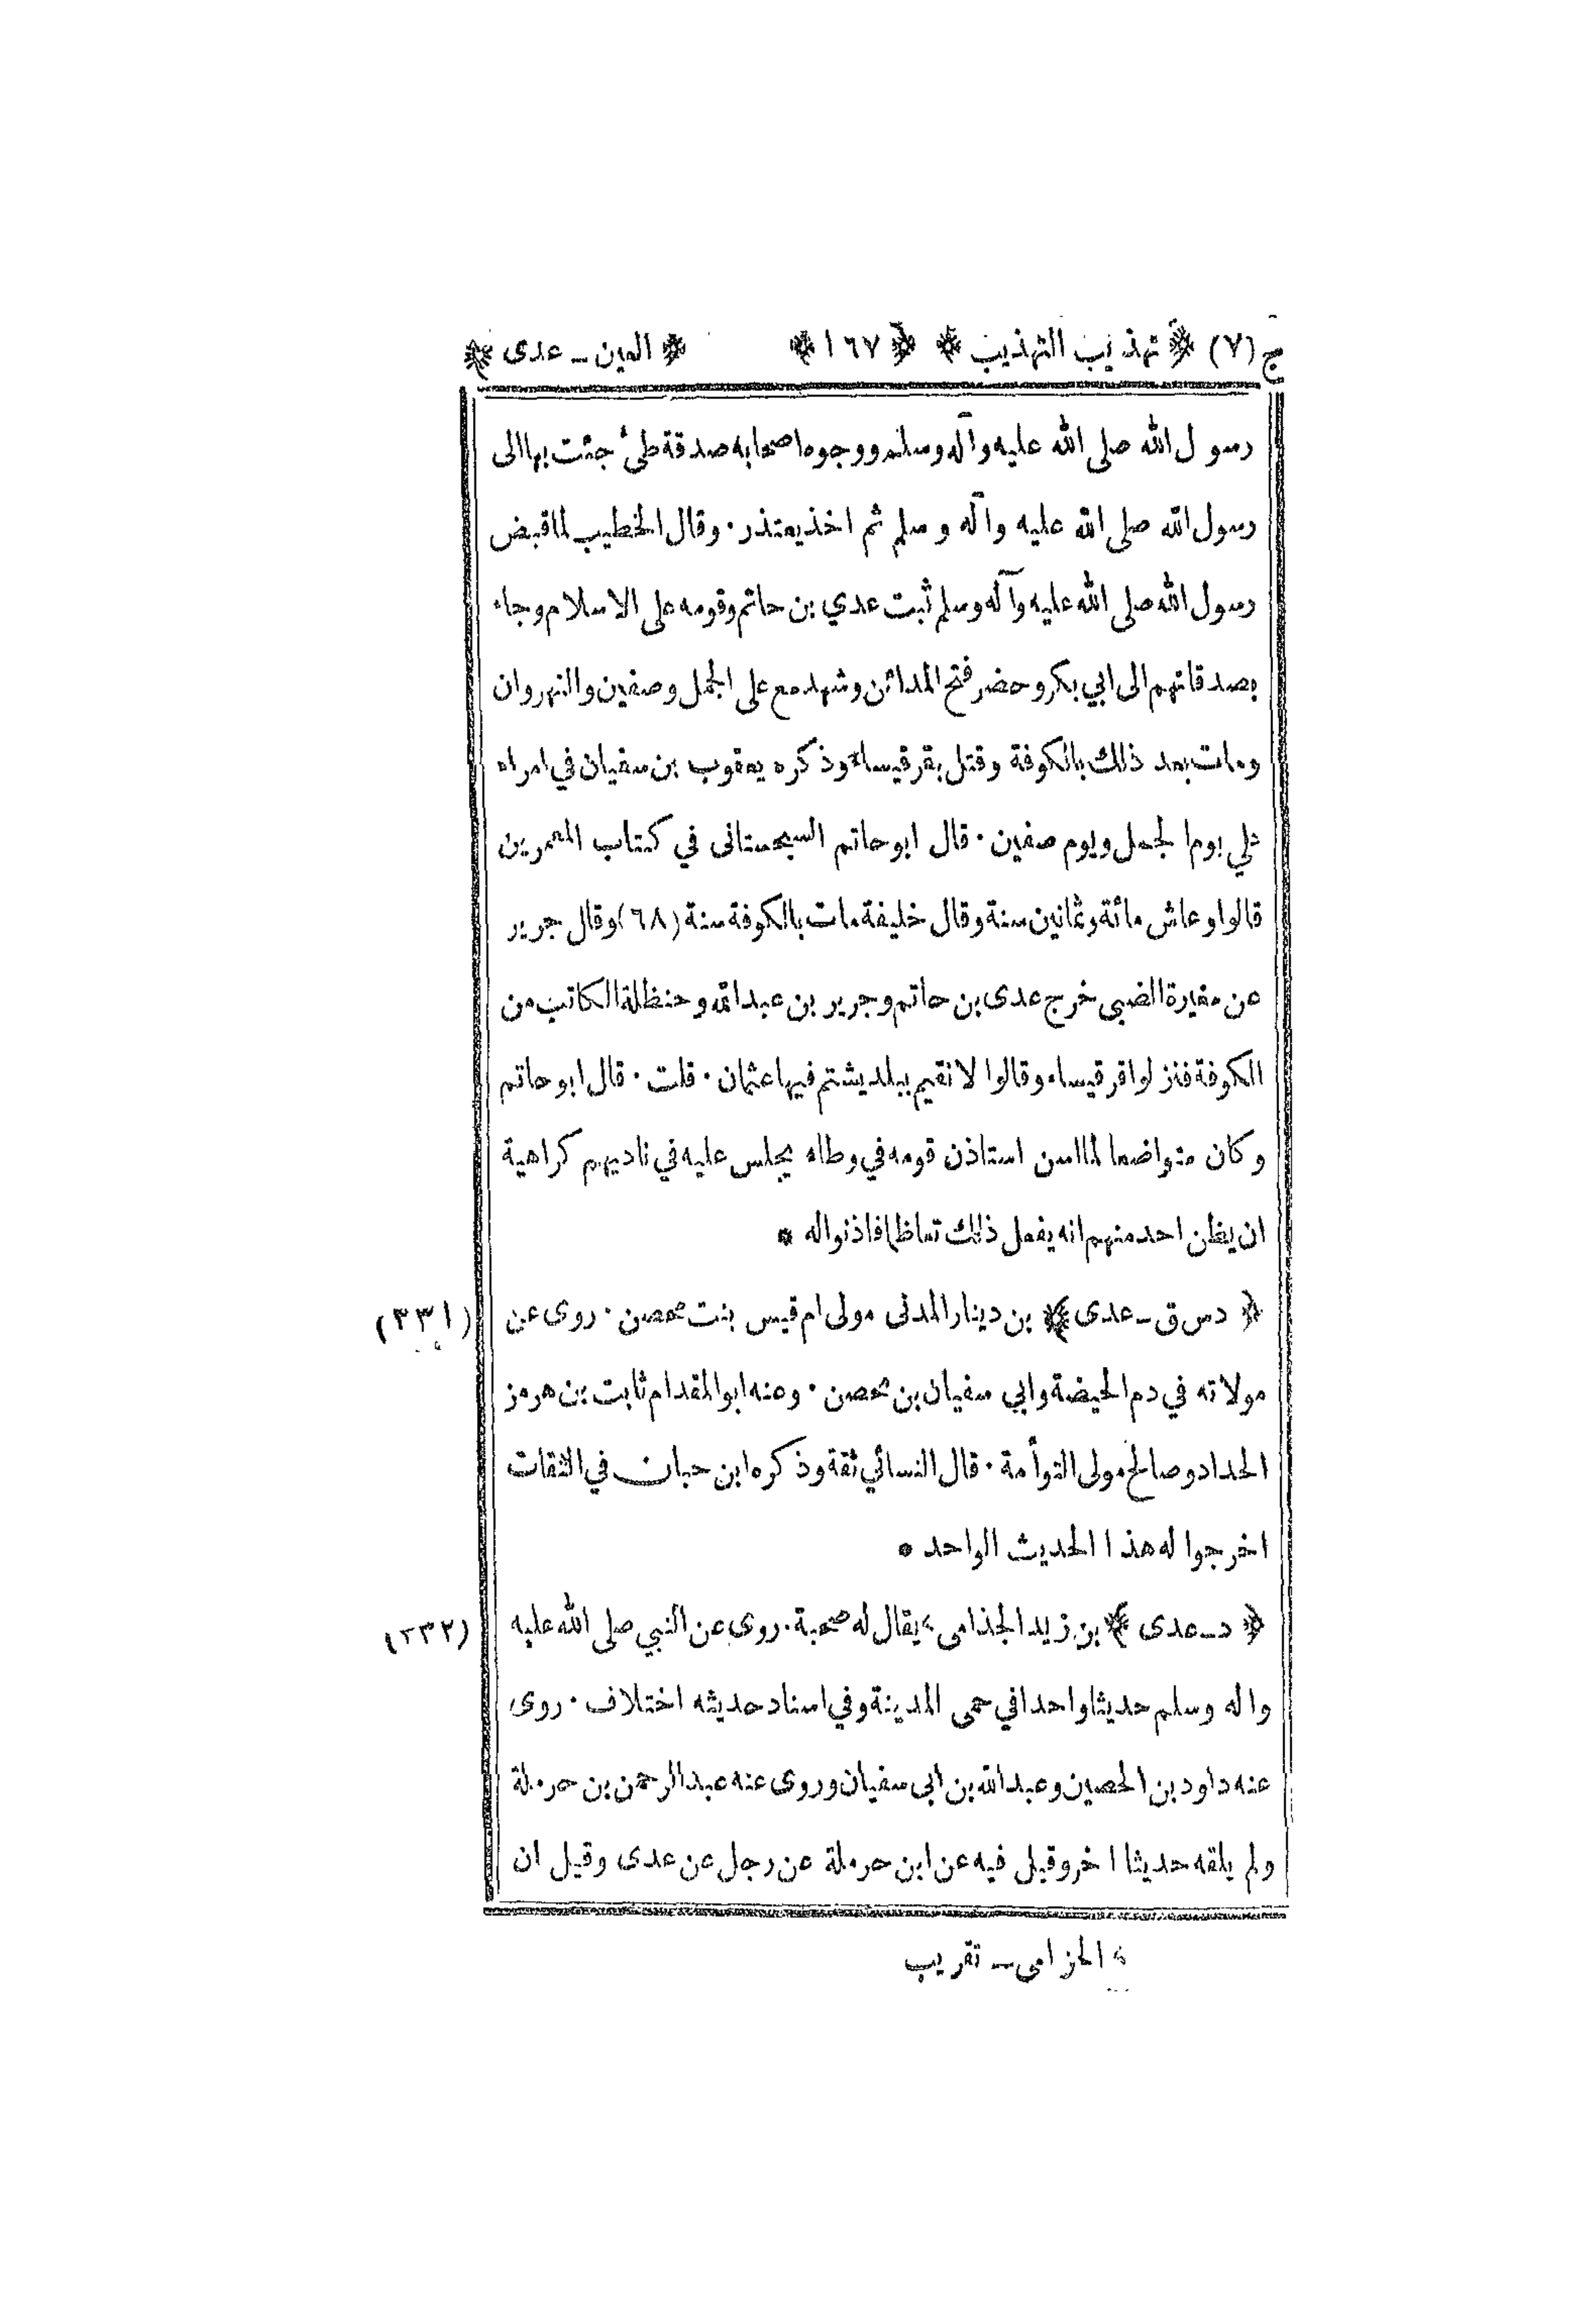 ج (٧) ﴿ تهذيب التهذيب ﴾ ﴿ ١٦٧ ﴾ ﴿ العين ـ عدى ﴾
رسول الله صلى الله عليه وآله وسلم ووجوه اصحابه صدقة طئ جئت بها الى
رسول الله صلى الله عليه وآله وسلم ثم اخذ يعتذر · وقال الخطيب لما قبض
رسول الله صلى الله عليه وآله وسلم ثبت عدي بن حاتم وقومه على الاسلام وجاء
بصدقاتهم الى ابي بكر وحضر فتح المدائن وشهد مع على الجمل وصفين والنهروان
ومات بعد ذلك بالكوفة وقتل بقرقيساء وذكره يعقوب بن سفيان في امراء
علي يوم الجمل ويوم صفين · قال ابو حاتم السجستانى في كتاب المعمرين
قالوا وعاش مائة وثمانين سنة وقال خليفة مات بالكوفة سنة (٦٨) وقال جرير
عن مغيرة الضبى خرج عدى بن حاتم وجرير بن عبد الله وحنظلة الكاتب من
الكوفة فنزلوا قرقيساء وقالوا لا نقيم ببلد يشتم فيها عثمان · قلت · قال ابو حاتم
وكان متواضعا لما اسن استاذن قومه في وطاء يجلس عليه في ناديهم كراهية
ان يظن احد منهم انه يفعل ذلك تعاظما فاذنوا له *
﴿ دس ق ـ عدى ﴾ بن دينار المدنى مولى ام قيس بنت محصن · روى عن (٣٣١)
مولاته في دم الحيضة وابي سفيان بن محصن · وعنه ابو المقدام ثابت بن هرمز
الحداد وصالح مولى التوأمة · قال النسائي ثقة وذكره ابن حبان في الثقات
اخرجوا له هذا الحديث الواحد *
﴿ د ـ عدى ﴾ بن زيد الجذامى ؛ يقال له صحبة · روى عن النبي صلى الله عليه (٣٣٢)
واله وسلم حديثا واحدا في حمى المدينة وفي اسناد حديثه اختلاف · روى
عنه داود بن الحصين وعبد الله بن ابى سفيان وروى عنه عبد الرحمن بن حرملة
ولم يلقه حديثا اخر وقيل فيه عن ابن حرملة عن رجل عن عدى وقيل ان
؛ الحزامى ـ تقريب